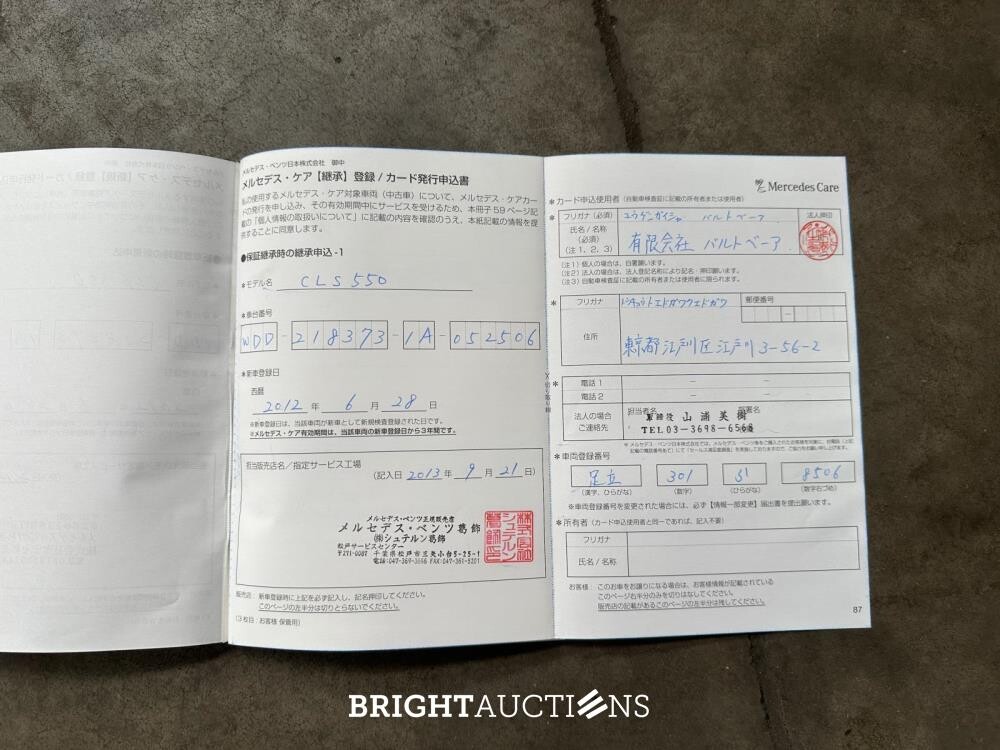 メルセデス・ベンツ日本株式会社 御中
メルセデス・ケア【継承】登録 / カード発行申込書
私の使用するメルセデス・ケア対象車両（中古車）について、メルセデス・ケアカー
ドの発行を申し込み、その有効期間中にサービスを受けるため、本冊子59ページ記
載の「個人情報の取扱いについて」に記載の内容を確認のうえ、本紙記載の情報を提
供することに同意します。
●保証継承時の継承申込 - 1
＊モデル名 CLS 550
＊車台番号
WDD - 218373 - 1A - 052506
＊新車登録日
西暦
2012 年 6 月 28 日
※新車登録日は、当該車両が新車として新規検査登録された日です。
※メルセデス・ケア有効期間は、当該車両の新車登録日から3年間です。
担当販売店名／指定サービス工場
(記入日 2013 年 9 月 21 日)
メルセデス・ベンツ正規販売店
メルセデス・ベンツ葛飾
㈱シュテルン葛飾
松戸サービスセンター
〒271-0087 千葉県松戸市三矢小台5-25-1
電話:047-369-3666 FAX:047-361-5201
株式会社
シュテルン
葛飾
販売店： 新車登録時に上記を必ず記入し、記名押印してください。
このページの左半分は切りとらないでください。
(3枚目：お客様 保管用)
Mercedes Care
＊カード申込使用者（自動車検査証に記載の所有者または使用者）
＊ フリガナ（必須） ユウゲンガイシャ バルトベーア 法人押印
氏名 / 名称
（必須）
（注1. 2. 3） 有限会社 バルトベーア
（注1）個人の場合は、自署願います。
（注2）法人の場合は、法人登記名称により記名・押印願います。
（注3）自動車検査証に記載の所有者または使用者に限られます。
＊ フリガナ トウキョウトエドガワクエドガワ 郵便番号
住所 東京都江戸川区江戸川3-56-2
＊ 電話1 － －
電話2 － －
法人の場合 担当者名 部署名
ご連絡先 取締役 山浦美樹
TEL03-3698-6568
＊車両登録番号
足立 301 8506
（漢字、ひらがな） （数字） （ひらがな） （数字右づめ）
※車両登録番号を変更された場合には、必ず【情報一部変更】届出書を提出願います。
＊所有者（カード申込使用者と同一であれば、記入不要）
フリガナ
氏名 / 名称
お客様： このお車をお譲りになる場合は、お客様情報が記載されている
このページ右半分のみを切りはなしてください。
販売店の記載があるこのページの左半分は残してください。
87
BRIGHTAUCTIONS